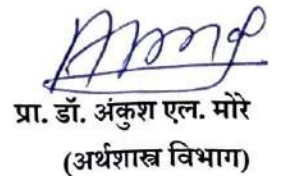 प्रा. डॉ. अंकुश एल. मोरे
(अर्थशास्त्र विभाग)